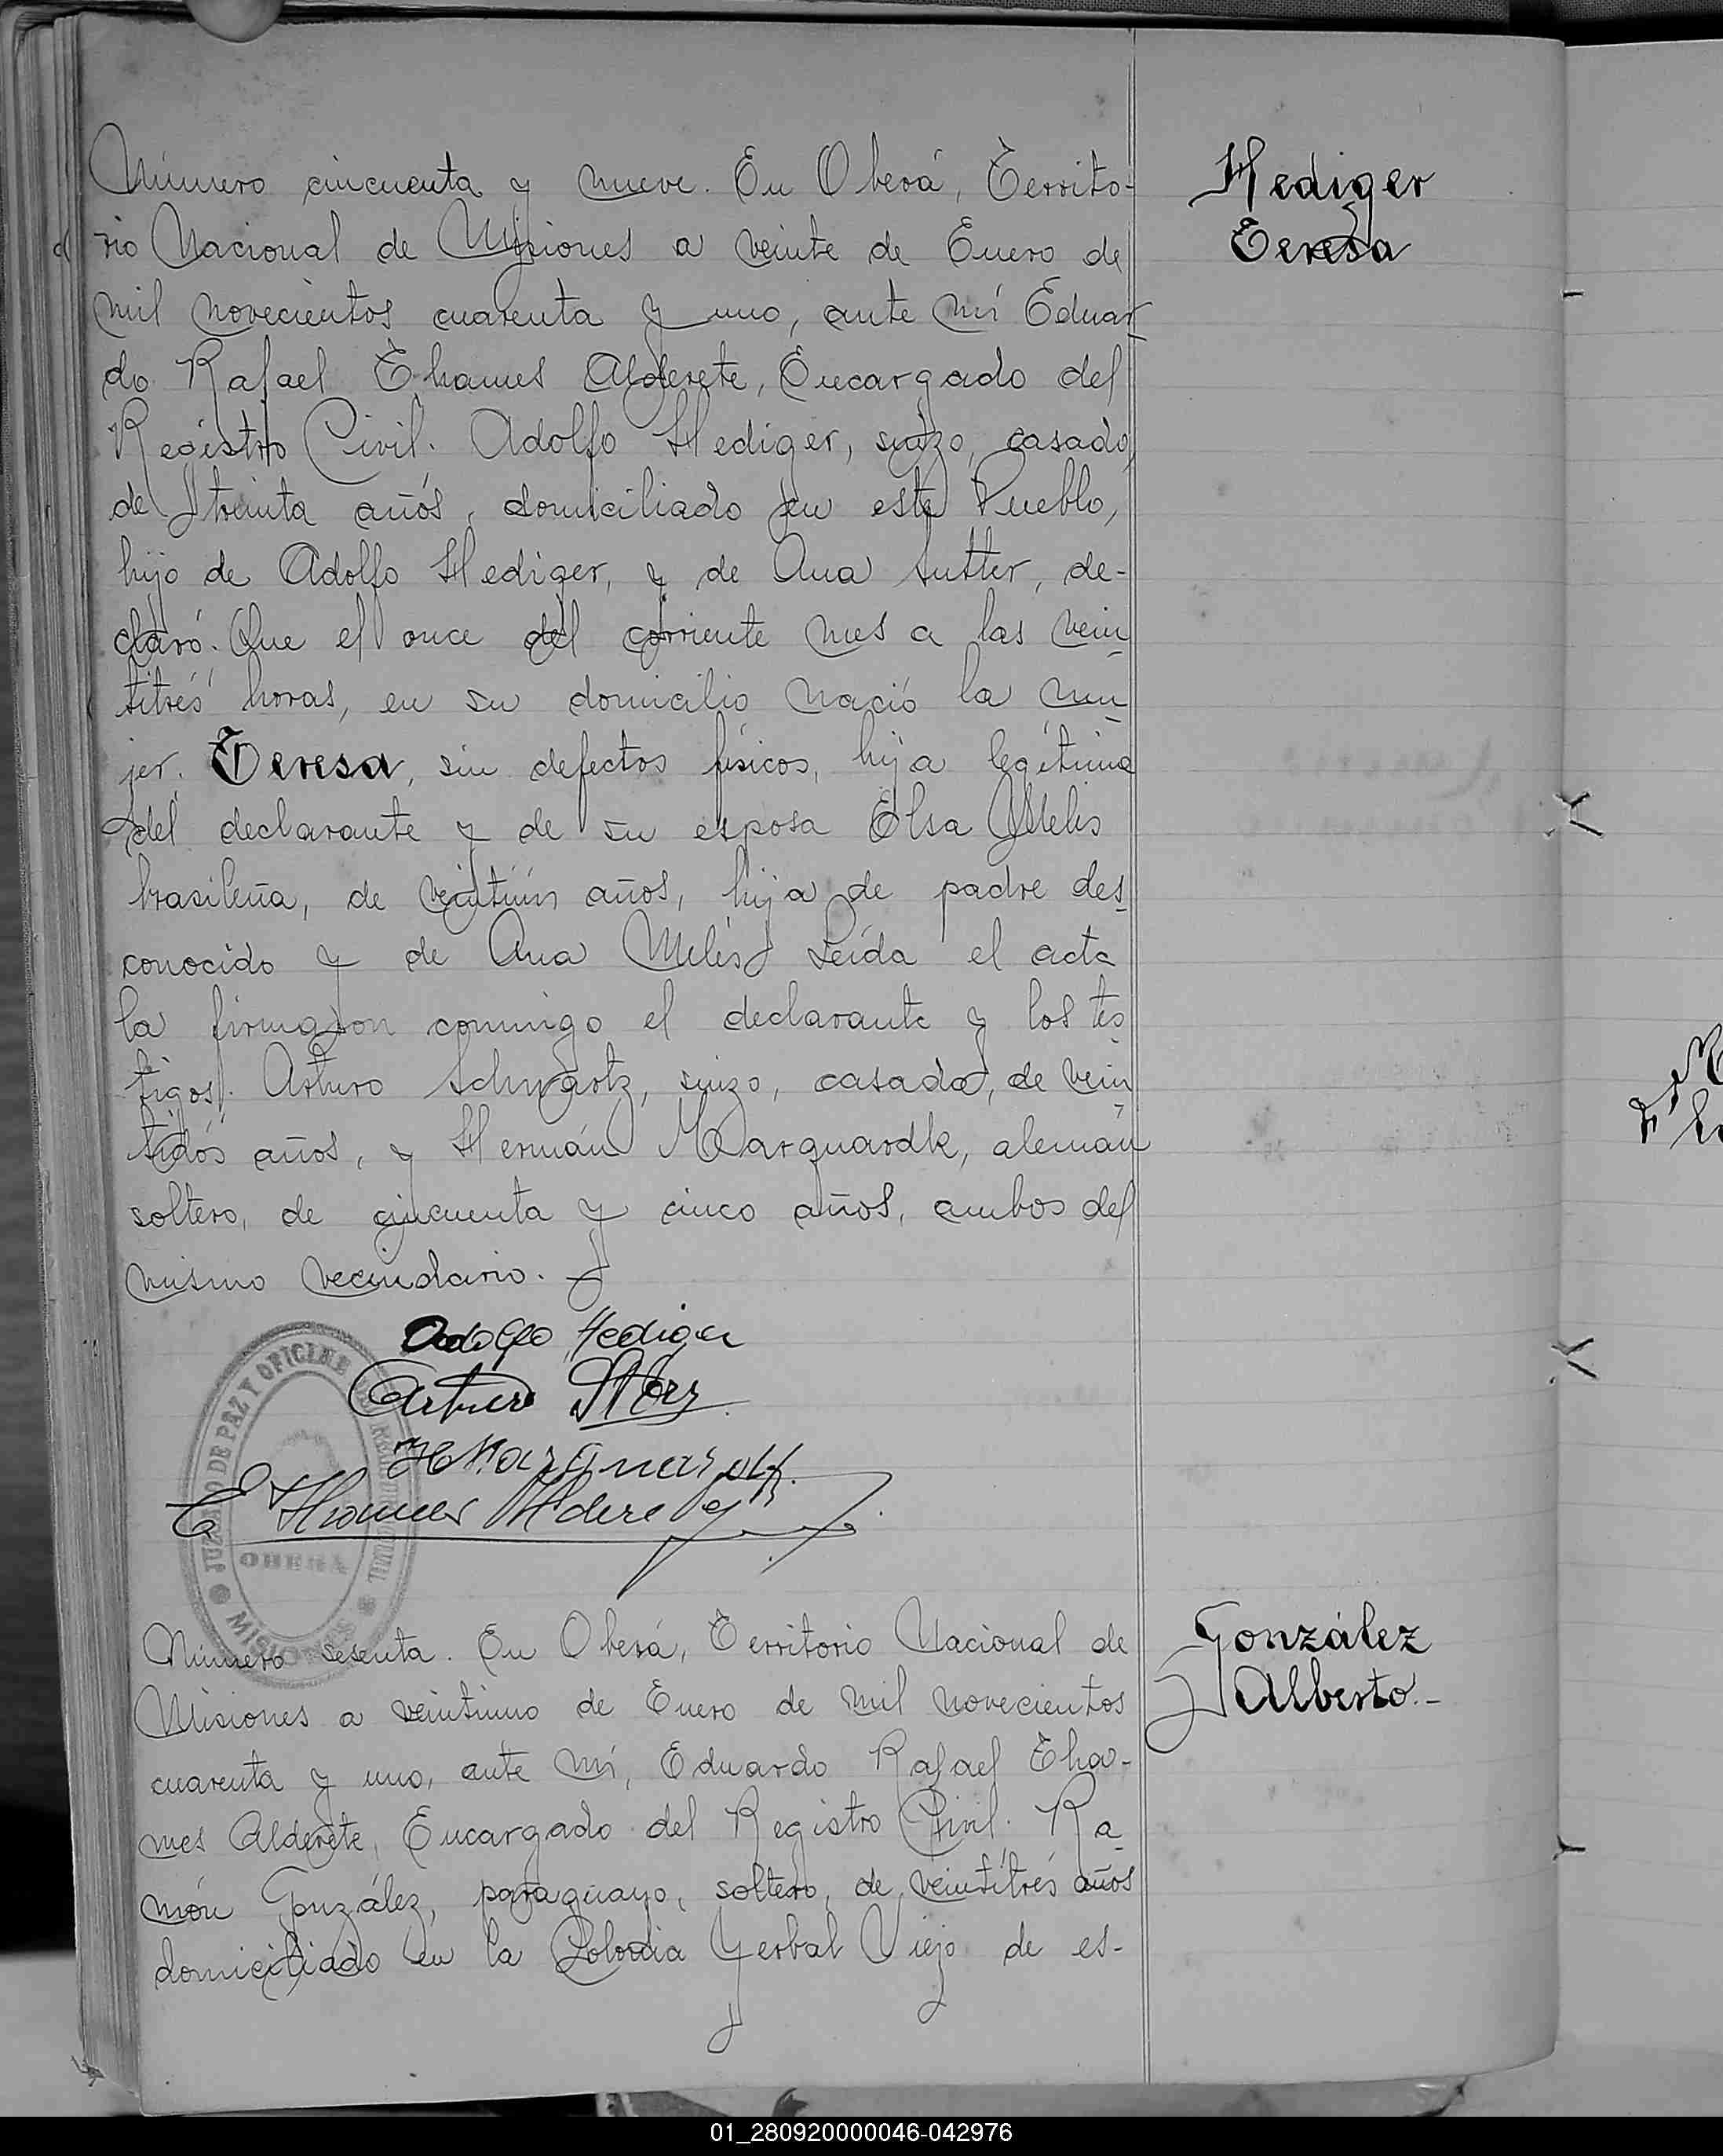 Hediger
Teresa
Número cincuenta y nueve. En Oberá, Territo-
rio Nacional de Misiones a veinte de Enero de
mil novecientos cuarenta y uno, ante mí Eduar-
do Rafael Thames Alderete, Encargado del
Registro Civil. Adolfo Hediger, suizo, casado,
de treinta años, domiciliado en este Pueblo,
hijo de Adolfo Hediger, y de Ana Sutter, de-
claró. Que el once del corriente mes a las vein-
titrés horas, en su domicilio nació la mu-
jer. Teresa, sin defectos físicos, hija legítima
del declarante y de su esposa Elsa Melis
brasileña, de veintiún años, hija de padre des-
conocido y de Ana Melis. Leída el acta
la firmaron conmigo el declarante y los tes-
tigos. Arturo Schwartz, suizo, casado, de vein-
tidós años, y Hermán Marquardk, alemán
soltero, de cincuenta y cinco años, ambos del
mismo vecindario.
Adolfo Hediger
Arturo
H Marquardt.
E Thames Alderete
JUZGADO DE PAZ Y OFICINA
OBERA
MISIONES
González
Alberto.-
Número sesenta. En Oberá, Territorio Nacional de
Misiones a veintiuno de Enero de mil novecientos
cuarenta y uno, ante mí, Eduardo Rafael Tha-
mes Alderete, Encargado del Registro Civil. Ra-
món González, paraguayo, soltero, de veintitrés años
domiciliado en la Colonia Yerbal Viejo de es-
01_280920000046-042976